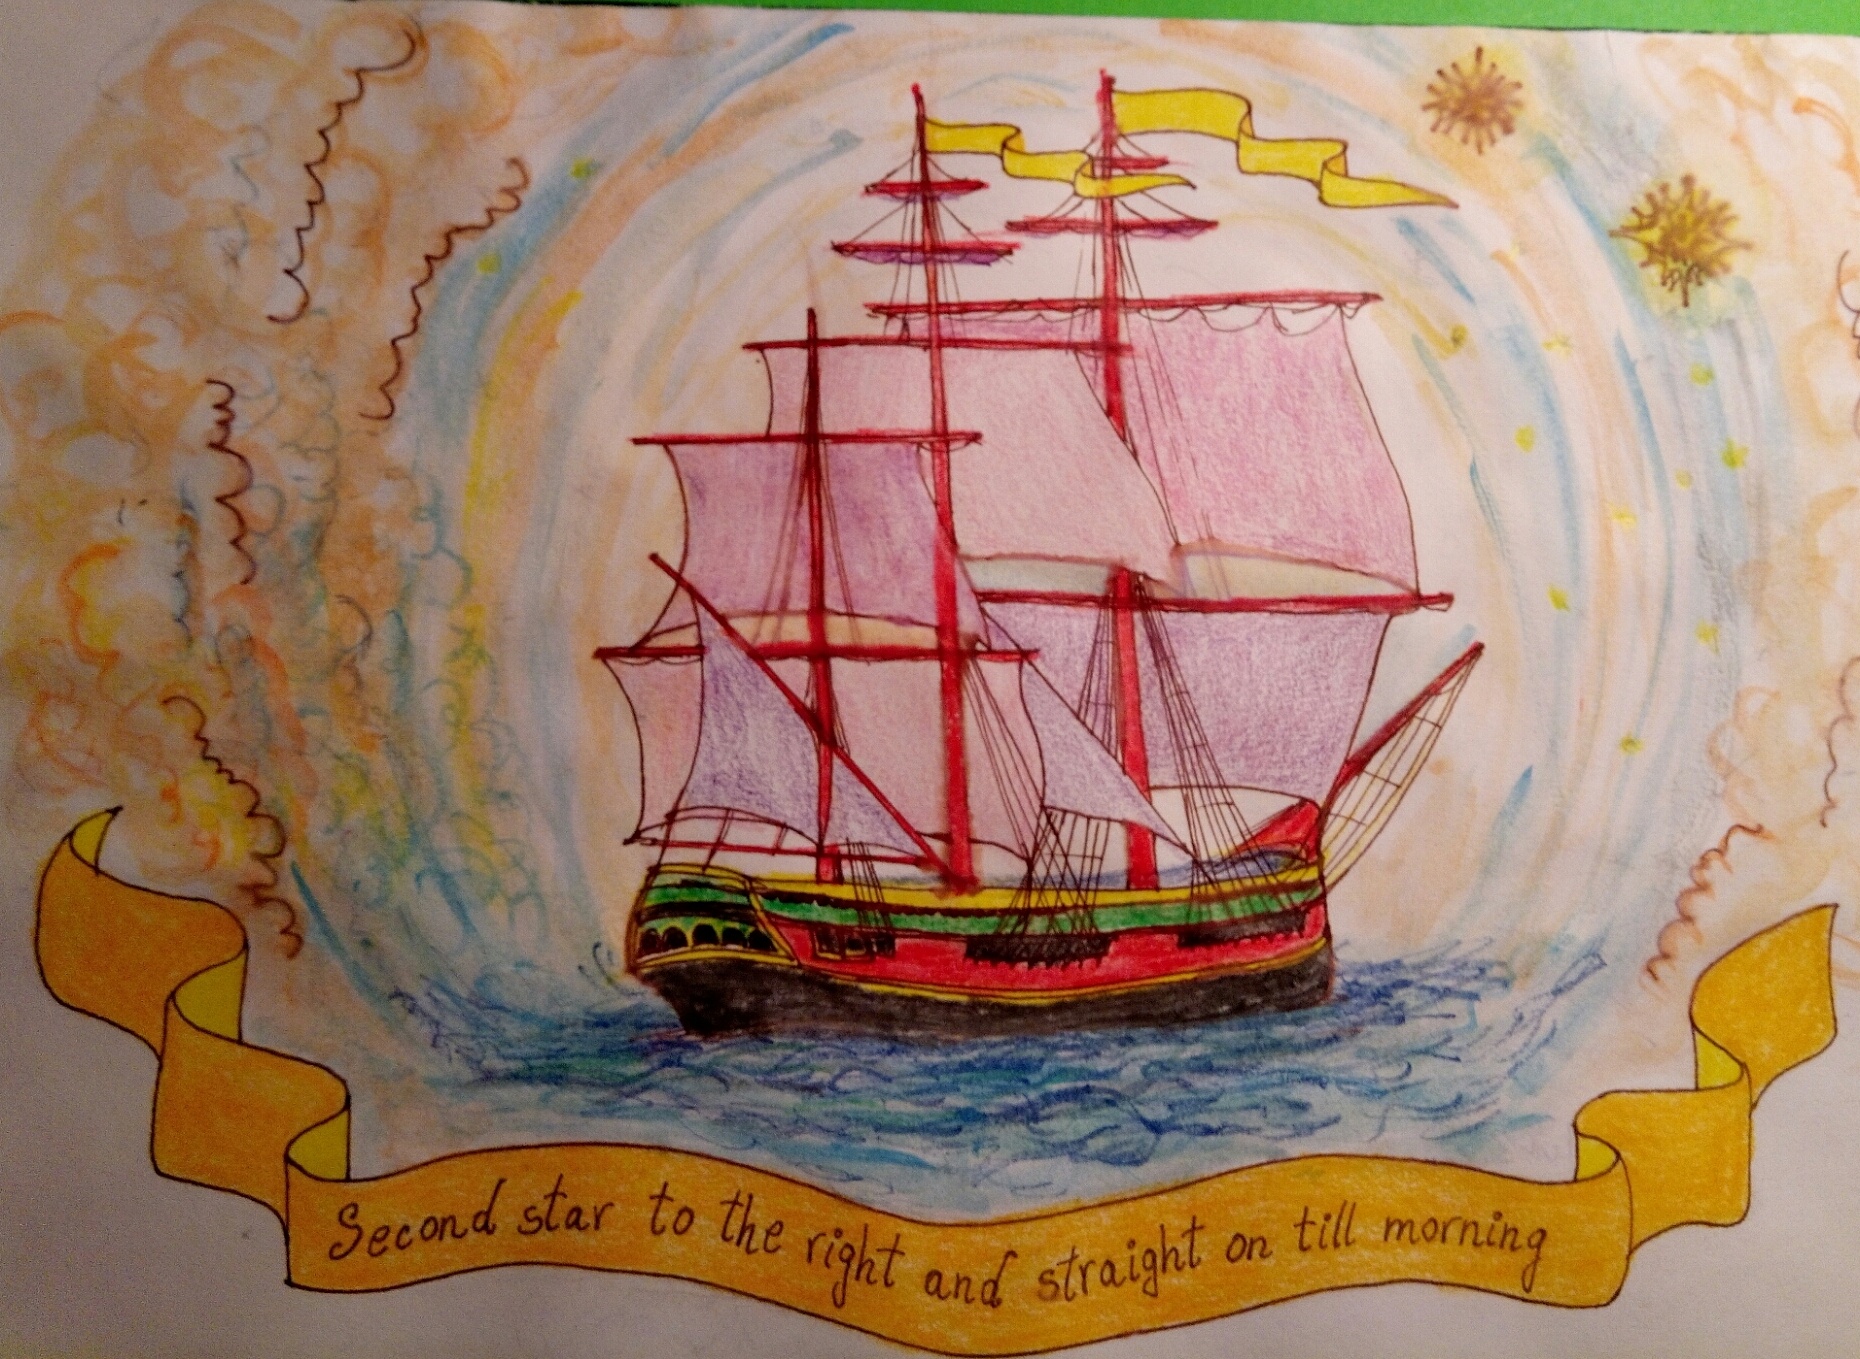 Second star to the right and straight on till morning